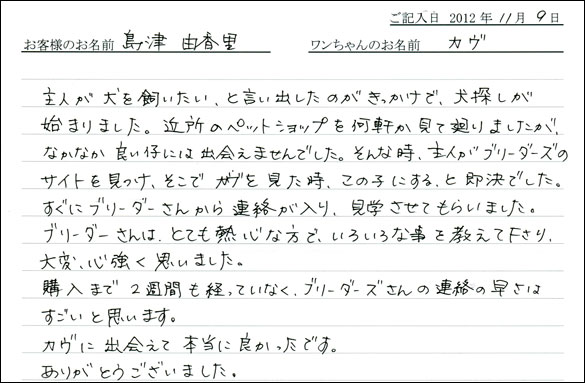 ご記入日 2012年 11月 9日
お客様のお名前 島津 由香里 ワンちゃんのお名前 カヴ
主人が犬を飼いたい、と言い出したのがきっかけで、犬探しが
始まりました。近所のペットショップを何軒か見て廻りましたが、
なかなか良い仔には出会えませんでした。そんな時、主人がブリーダーズの
サイトを見つけ、そこでカヴを見た時、この子にする、と即決でした。
すぐにブリーダーさんから連絡が入り、見学させてもらいました。
ブリーダーさんは、とても熱心な方で、いろいろな事を教えて下さり、
大変、心強く思いました。
購入まで2週間も経っていなく、ブリーダーズさんの連絡の早さは
すごいと思います。
カヴに出会えて本当に良かったです。
ありがとうございました。